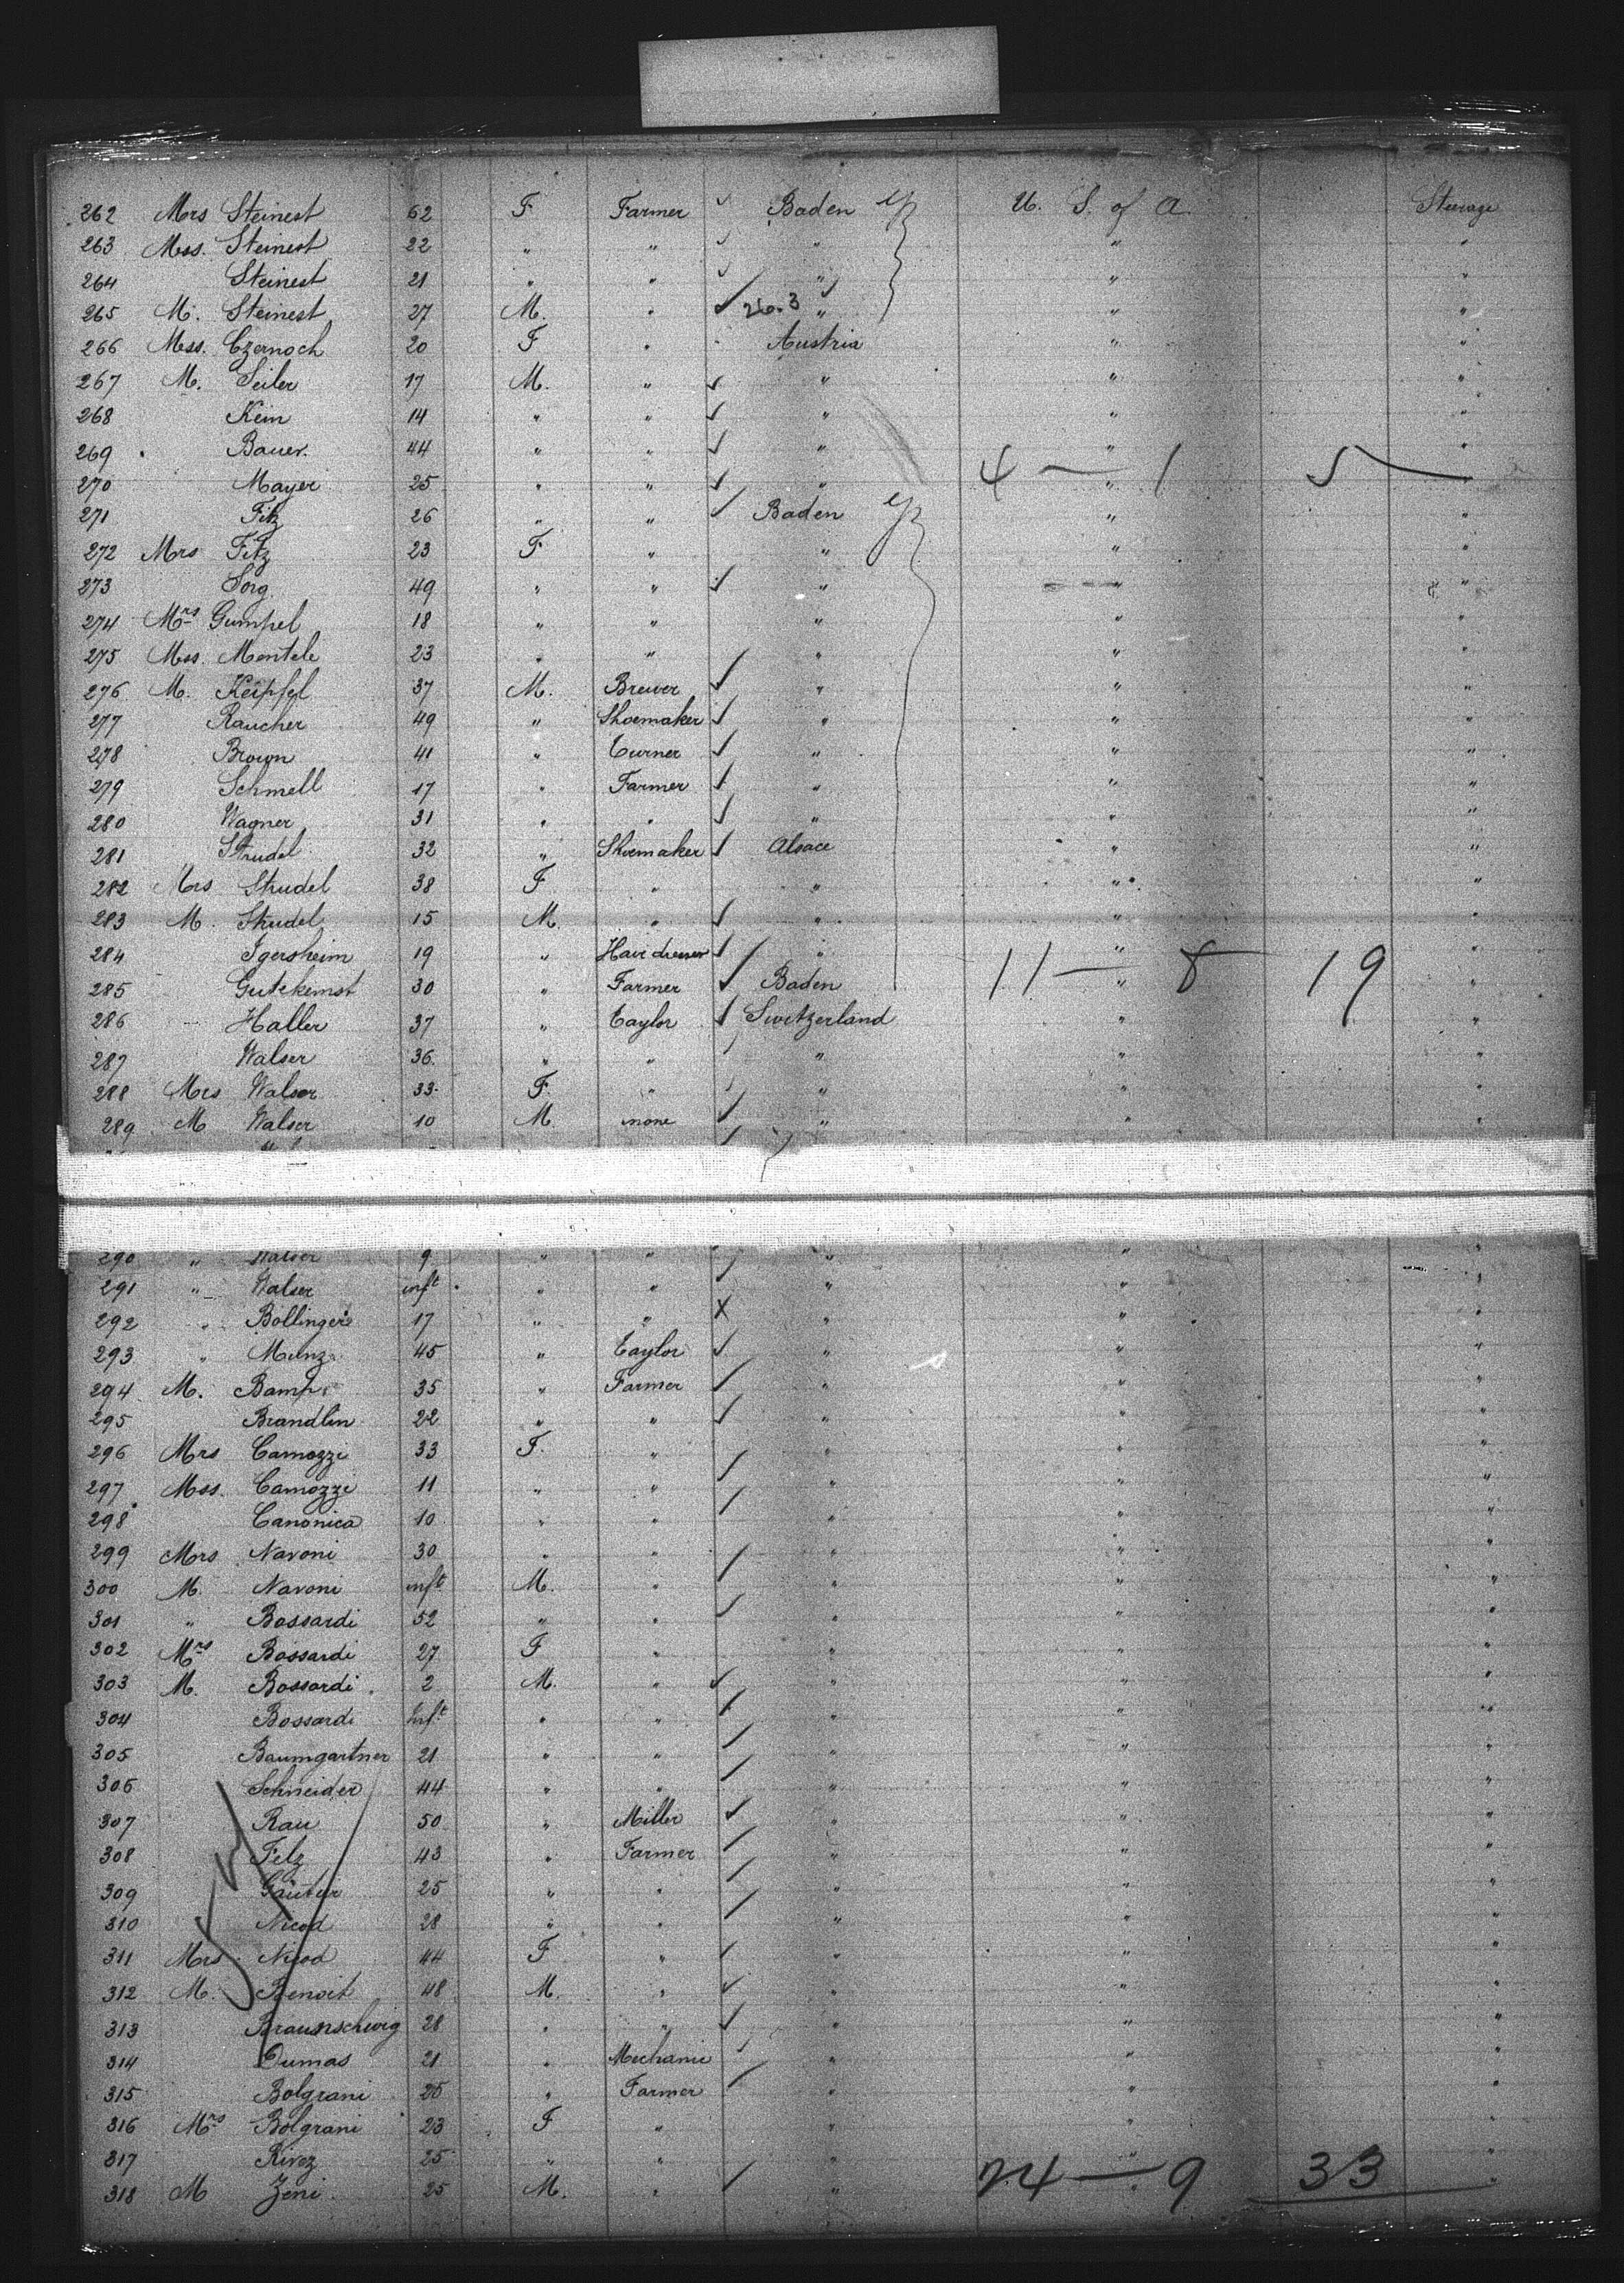 262 Mrs Steinest 62 F Farmer Baden U. S. of A. Steerage
263 Mss. Steinest 22 " " " " "
264 Steinest 21 " " " " "
265 M. Steinest 27 M. " 26.3 " " "
266 Mss. Czernoch 20 F " Austria " "
267 M. Seiler 17 M. " " " "
268 Kein 14 " " " " "
269 Bauer. 44 " " " " "
270 Mayer 25 " " " 4 — " 1 5 —
271 Fitz 26 " " Baden " "
272 Mrs Fitz 23 F " " " "
273 Sorg. 49 " " " " "
274 Mrs Gumpel 18 " " " " "
275 Mss. Mentele 23 " " " " "
276 M. Keipfel 37 M. Brewer " " "
277 Raucher 49 " Shoemaker " " "
278 Brown 41 " Turner " " "
279 Schmell 17 " Farmer " " "
280 Wagner 31 " " " " "
281 Strudel 32 " Shoemaker Alsace " "
282 Mrs Strudel 38 F " " " "
283 M. Strudel 15 M. " " " "
284 Igersheim 19 " Hair dresser " " "
285 Gutekemst 30 " Farmer Baden 11 — " 8 — 19 "
286 Haller 37 " Taylor Switzerland " "
287 Walser 36. " " " " "
288 Mrs Walser 33. F. " " " "
289 M Walser 10 M none " " "
290 " Walser 9 " " " " "
291 " Walser inft " " " " "
292 " Bollinger 17 " " X " " "
293 " Munz 45 " Taylor " " "
294 M. Bamp 35 " Farmer " " "
295 Brandlin 22 " " " " "
296 Mrs Camozzi 33 F. " " " "
297 Mss. Camozzi 11 " " " " "
298 Canonica 10 " " " " "
299 Mrs Navoni 30 " " " " "
300 M. Navoni inft M. " " " "
301 " Bossardi 52 " " " " "
302 Mrs Bossardi 27 F " " " "
303 M. Bossardi 2 M. " " " "
304 Bossardi Inft " " " " "
305 Baumgartner 21 " " " " "
306 Schneider 44 " " " " "
307 Rau 50 " Miller " " "
308 Felz 43 " Farmer " " "
309 25 " " " " "
310 Nicod 28 " " " " "
311 Mrs Nicod 44 F " " " "
312 M. Benoit 48 M. " " " "
313 Braunschwig 28 " " " " "
314 Dumas 21 " Mechanic " " "
315 Bolgrani 25 " Farmer " " "
316 Mrs Bolgrani 23 F " " " "
317 Rivoz 25 " " " " "
318 M Zeni 25 M. " " 24 — " 9 33 "